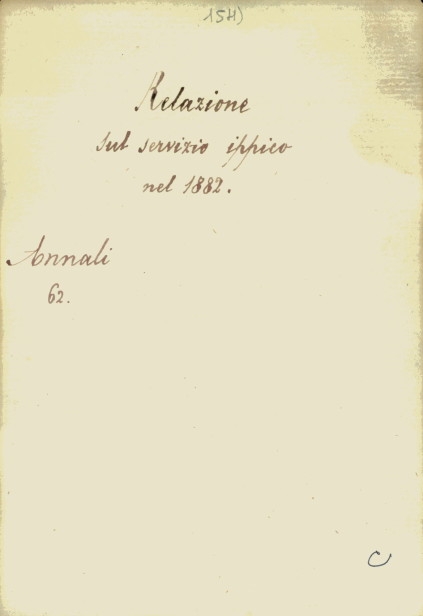 154)
Relazione
sul servizio ippico
nel 1882.
Annali
62.
C